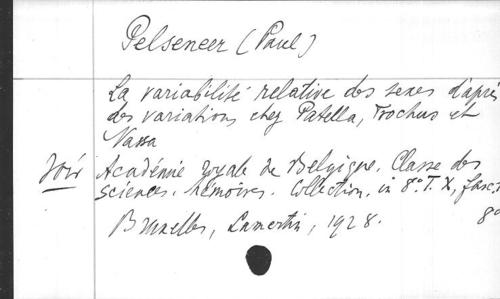 Pelseneer (Paul)
La variabilité relative des sexes d'après
des variations chez Patella, Trochus et
Nassa
Voir Académie royale de Belgique. Classe des
sciences. Mémoires. Collection. in 8°. T. X, fasc.
Bruxelles, Lamertin, 1928. 8°